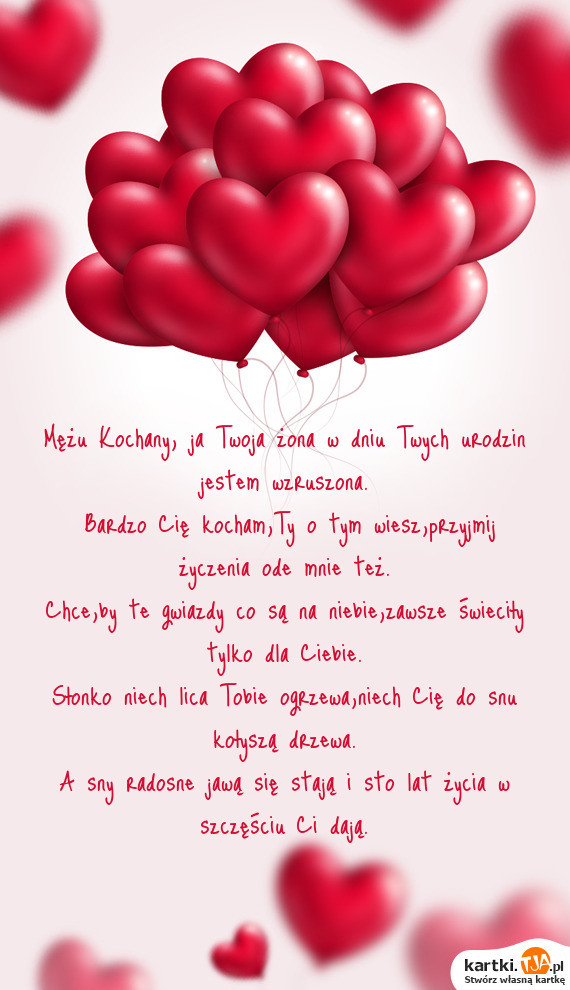 Mężu Kochany, ja Twoja żona w dniu Twych urodzin
jestem wzruszona.
Bardzo Cię kocham,Ty o tym wiesz,przyjmij
życzenia ode mnie też.
Chce,by te gwiazdy co są na niebie,zawsze świeciły
tylko dla Ciebie.
Słonko niech lica Tobie ogrzewa,niech Cię do snu
kołyszą drzewa.
A sny radosne jawą się stają i sto lat życia w
szczęściu Ci dają.
kartki.TJA.pl
Stwórz własną kartkę